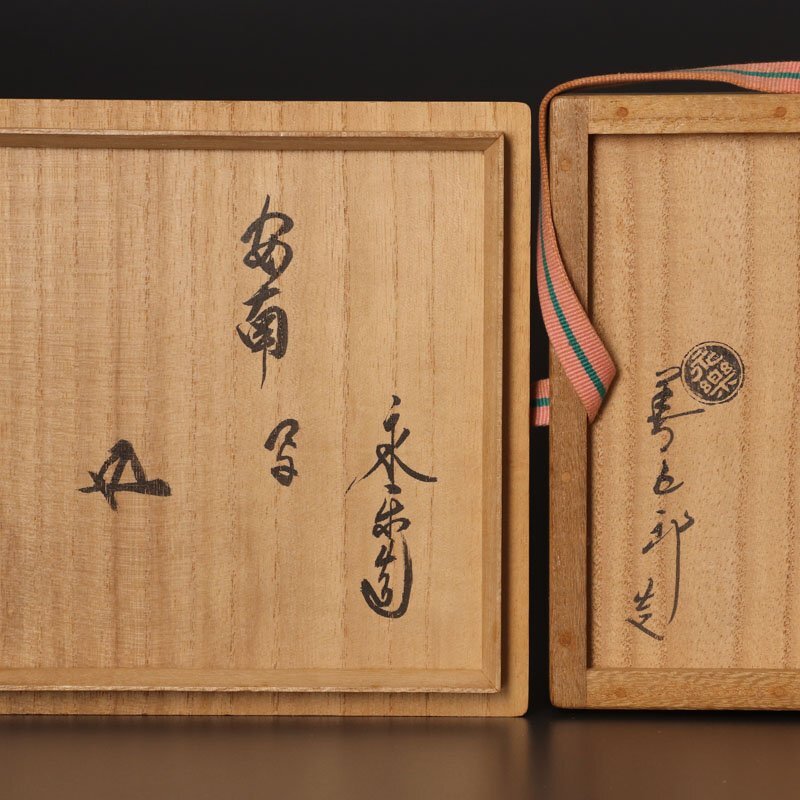 永楽造
安南
写
善五郎造
永樂